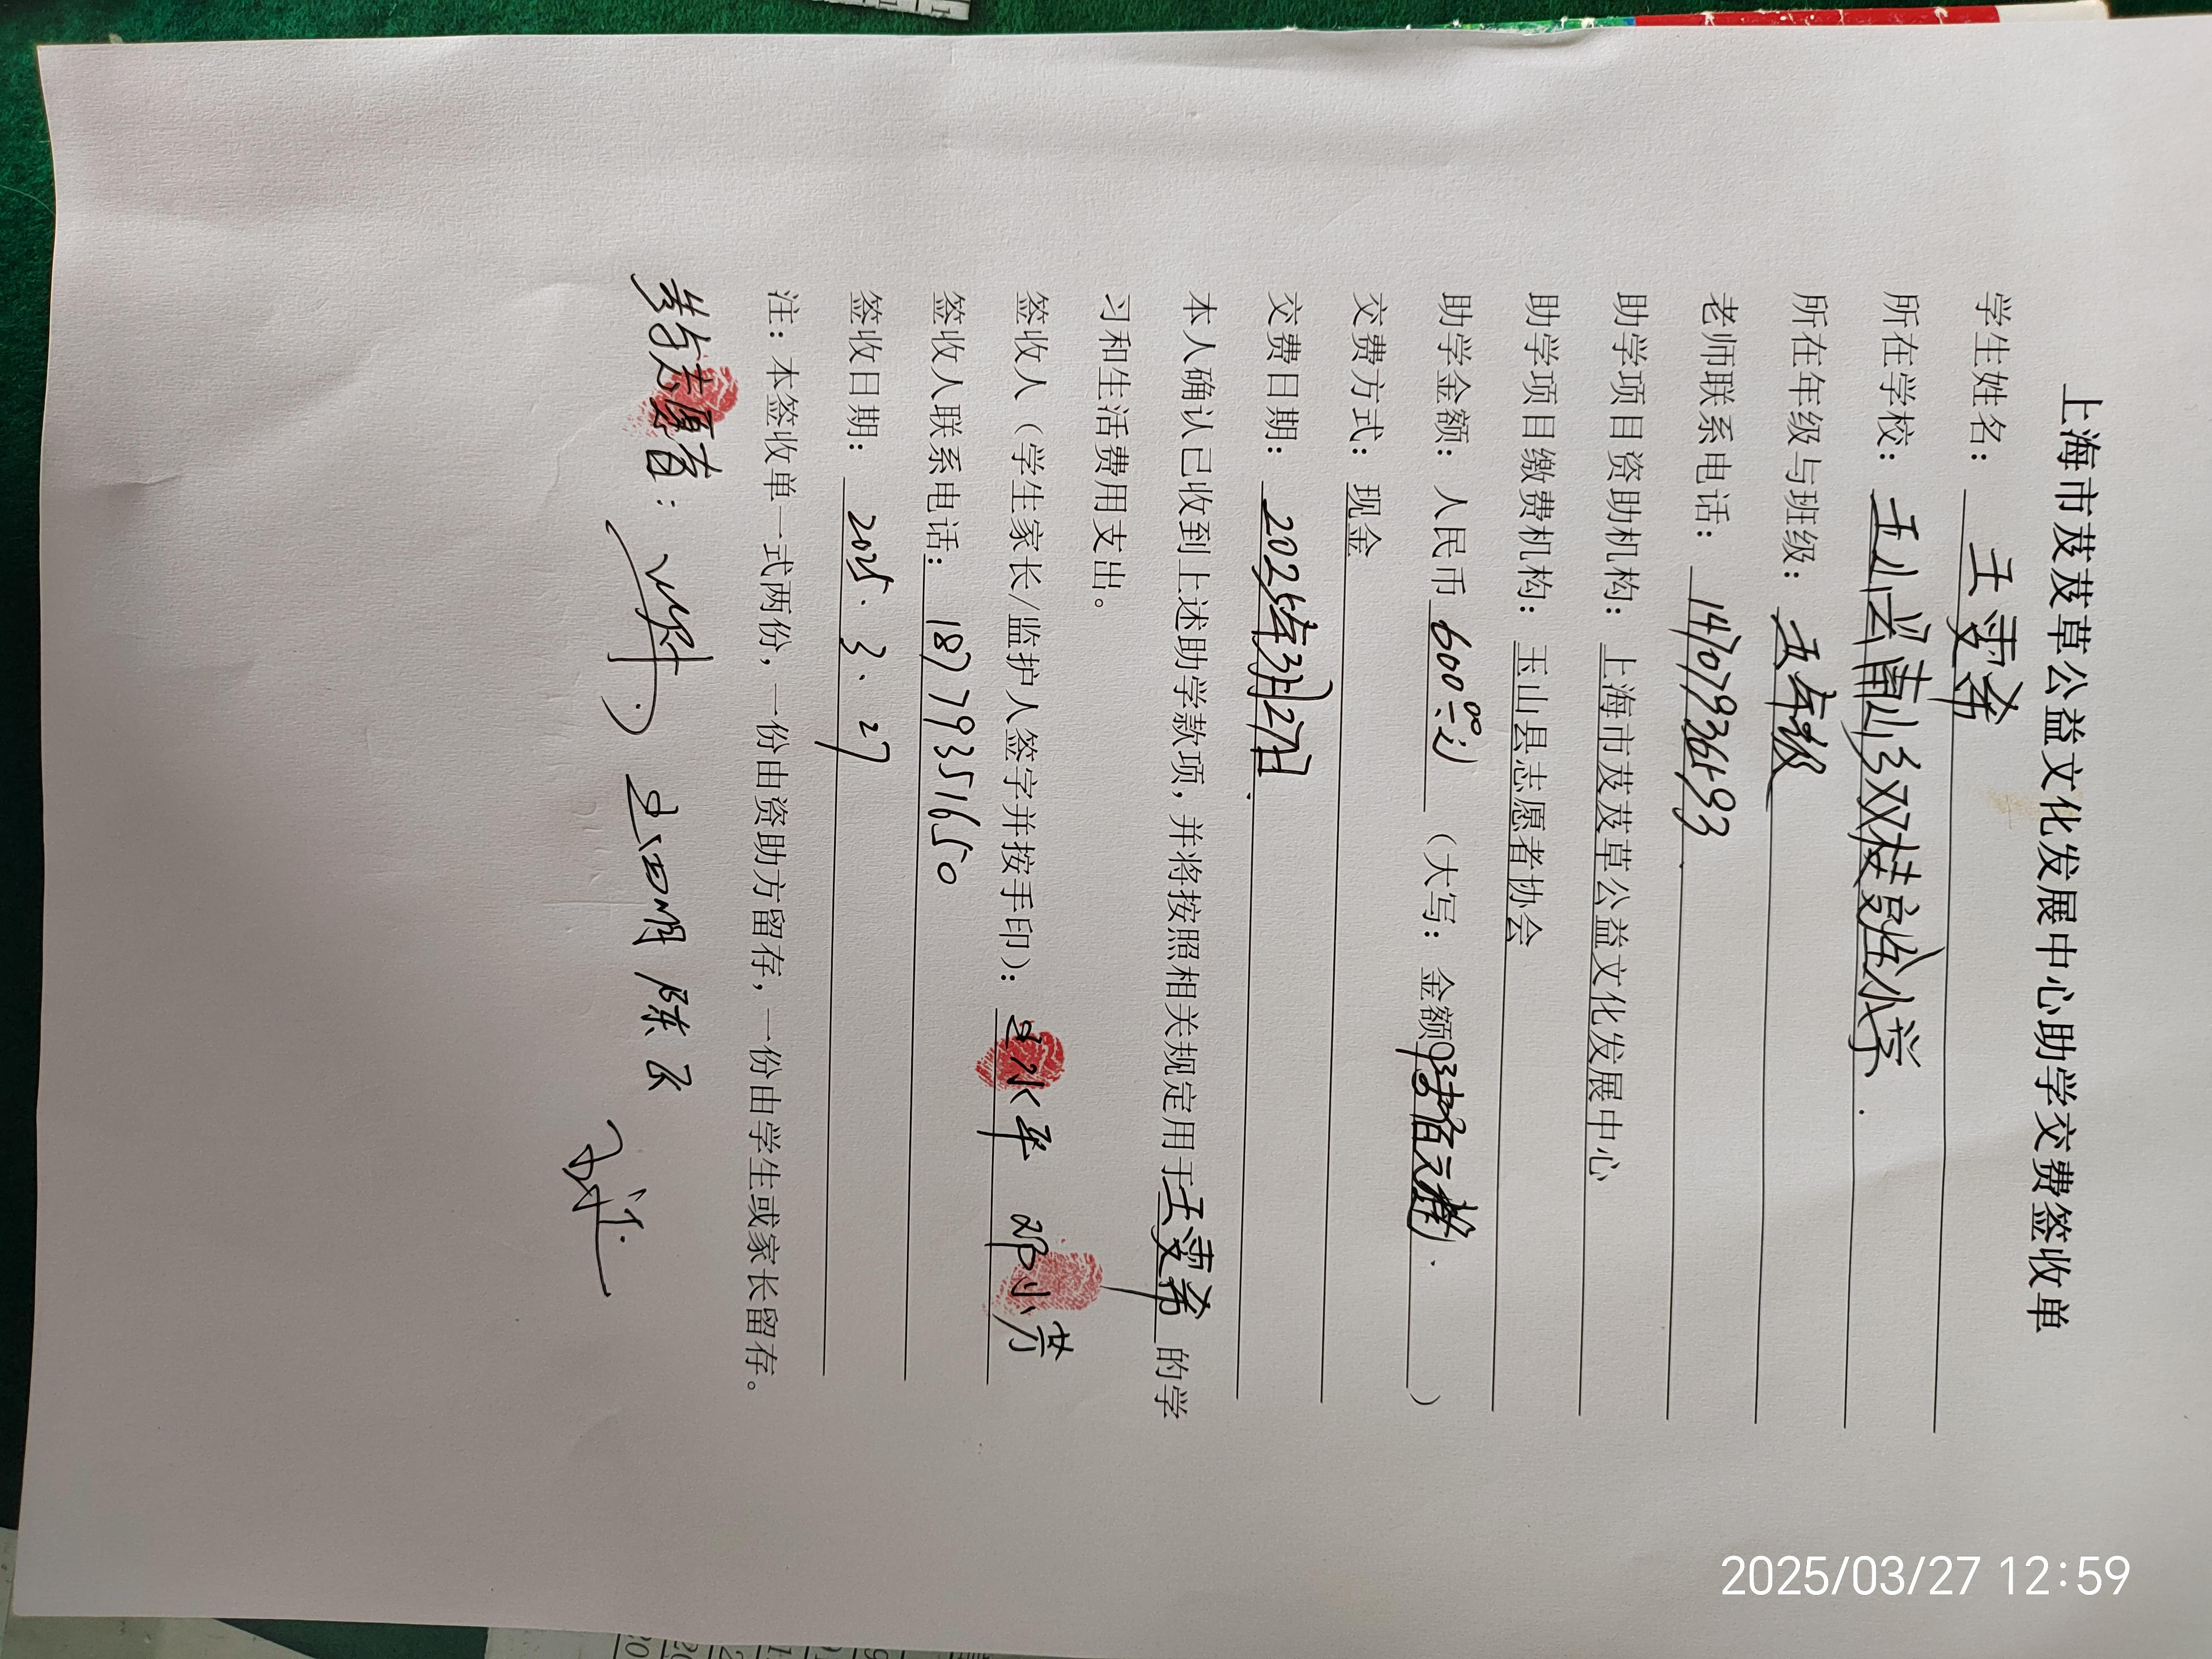 上海市芨芨草公益文化发展中心助学交费签收单
学生姓名： 王雯希
所在学校： 玉山县南山乡双枝完小学.
所在年级与班级： 五年级
老师联系电话： 14707936593
助学项目资助机构： 上海市芨芨草公益文化发展中心
助学项目缴费机构： 玉山县志愿者协会
助学金额： 人民币 600.00元 （大写： 金额 佰元整. ）
交费方式： 现金
交费日期： 2025年3月27日.
本人确认已收到上述助学款项，并将按照相关规定用于王雯希的学
习和生活费用支出。
签收人（学生家长/监护人签字并按手印）： 水平 邓小芳
签收人联系电话： 18779351650
签收日期： 2025.3.27
注：本签收单一式两份，一份由资助方留存，一份由学生或家长留存。
志愿者： 陈云
2025/03/27 12:59